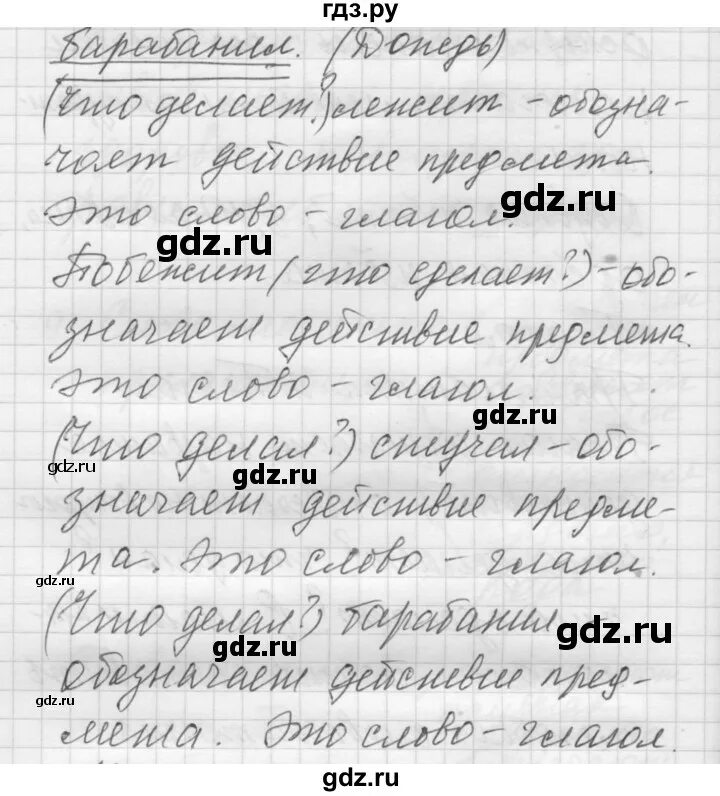 гдз.ру
барабанил. (Дождь)
(Что делает?) лежит - обозна-
чает действие предмета.
Это слово - глагол.
Побежит (что сделает?) - обо-
значает действие предмета.
Это слово - глагол.
(Что делал?) стучал - обо-
значает действие предме-
та. Это слово - глагол.
(Что делал?) барабанил
обозначает действие пред-
мета. Это слово - глагол.
gdz.ru
gdz.ru
gdz.ru
gdz.ru
gdz.ru
gdz.ru
gdz.ru
gdz.ru
gdz.ru
gdz.ru
gdz.ru